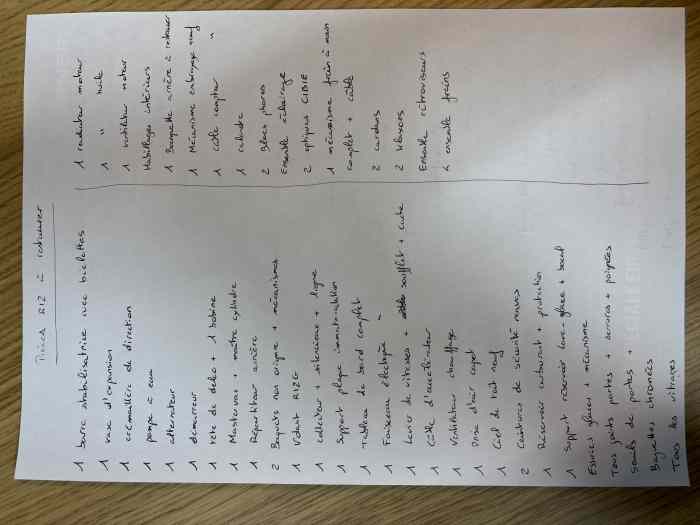 Pièces R12 à restaurer
1 barre stabilisatrice avec biellettes
1 vase d'expansion
1 crémaillère de direction
1 pompe à eau
1 alternateur
1 démarreur
1 tête de delco + 1 bobine
1 Mastervac + maître cylindre
1 Répartiteur arrière
2 Baquets non origine + mécanismes
1 Volant R12G
1 collecteur + silencieux + ligne
1 Support plaque immatriculation
1 Tableau de bord complet
1 Faisceau électrique "
1 Levier de vitesses + soufflet + cache
1 Câble d'accélérateur
1 Ventilateur chauffage
1 Prise d'air capot
1 Ciel de toit neuf
2 Ceintures de sécurité neuves
1 Réservoir carburant + protection
1 Support réservoir lave-glace + bocal
Essuies glaces + mécanisme
Tous joints portes + serrures + poignées
Seuils de portes +
Baguettes chromées
Tous les vitrages
1 radiateur moteur
1 " huile
1 ventilateur moteur
Habillages intérieurs
1 Banquette arrière à restaurer
1 Mécanisme embrayage neuf
1 câble compteur "
1 cylindre
2 Blocs phares
Ensemble éclairage
2 optiques CIBIE
1 mécanisme frein à main
complet + câble
2 cardans
2 klaxons
Ensemble rétroviseurs
4 ensemble freins